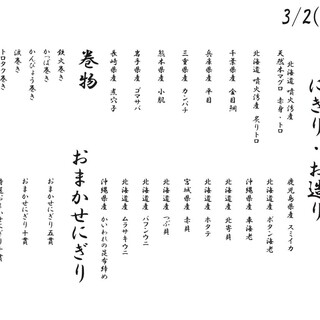 3/2(
にぎり・お造り
北海道 噴火湾産
天然本マグロ 赤身・トロ
北海道 噴火湾産 炙りトロ
千葉県産 金目鯛
兵庫県産 平目
三重県産 カンパチ
熊本県産 小肌
岩手県産 ゴマサバ
長崎県産 煮穴子
鹿児島県産 スミイカ
北海道産 ボタン海老
沖縄県産 車海老
北海道産 北寄貝
北海道産 ホタテ
宮城県産 赤貝
北海道産 つぶ貝
北海道産 バフンウニ
北海道産 ムラサキウニ
沖縄県産 かいわれの昆布締め
巻物
鉄火巻き
かっぱ巻き
かんぴょう巻き
涙巻き
トロタク巻き
おまかせにぎり
おまかせにぎり五貫
おまかせにぎり十貫